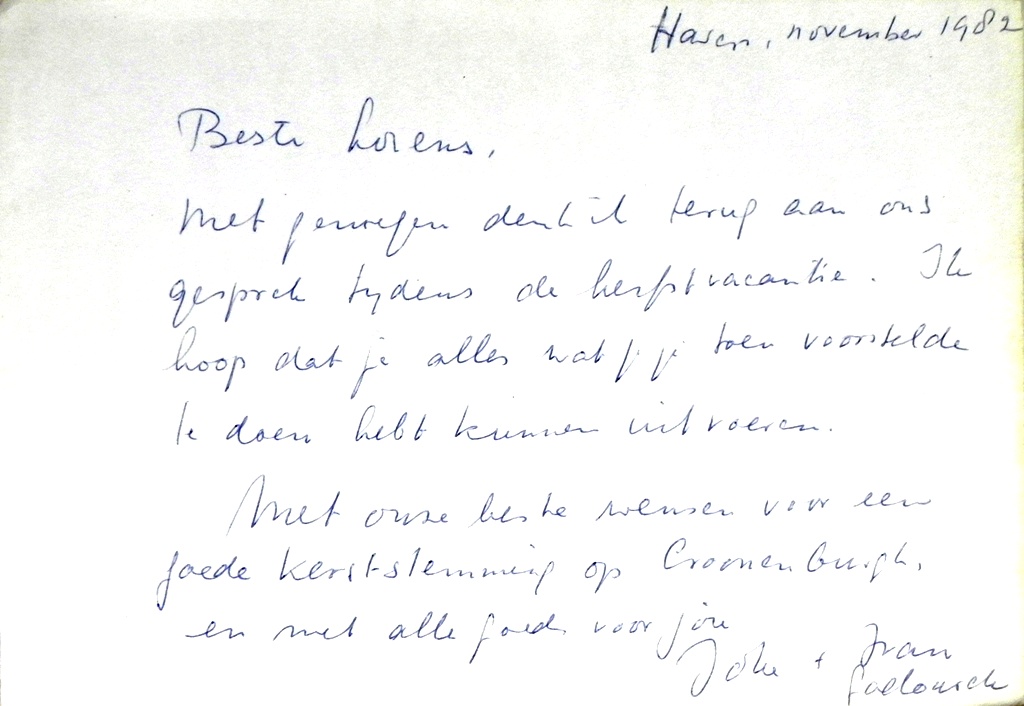 Haren, november 1982
Beste Lorens,
Met genoegen denk ik terug aan ons
gesprek tijdens de herfstvacantie. Ik
hoop dat je alles wat je je toen voorstelde
te doen hebt kunnen uitvoeren.
Met onze beste wensen voor een
goede kerststemming op Croonenburgh,
en met alle goeds voor jou
Joke + Fran